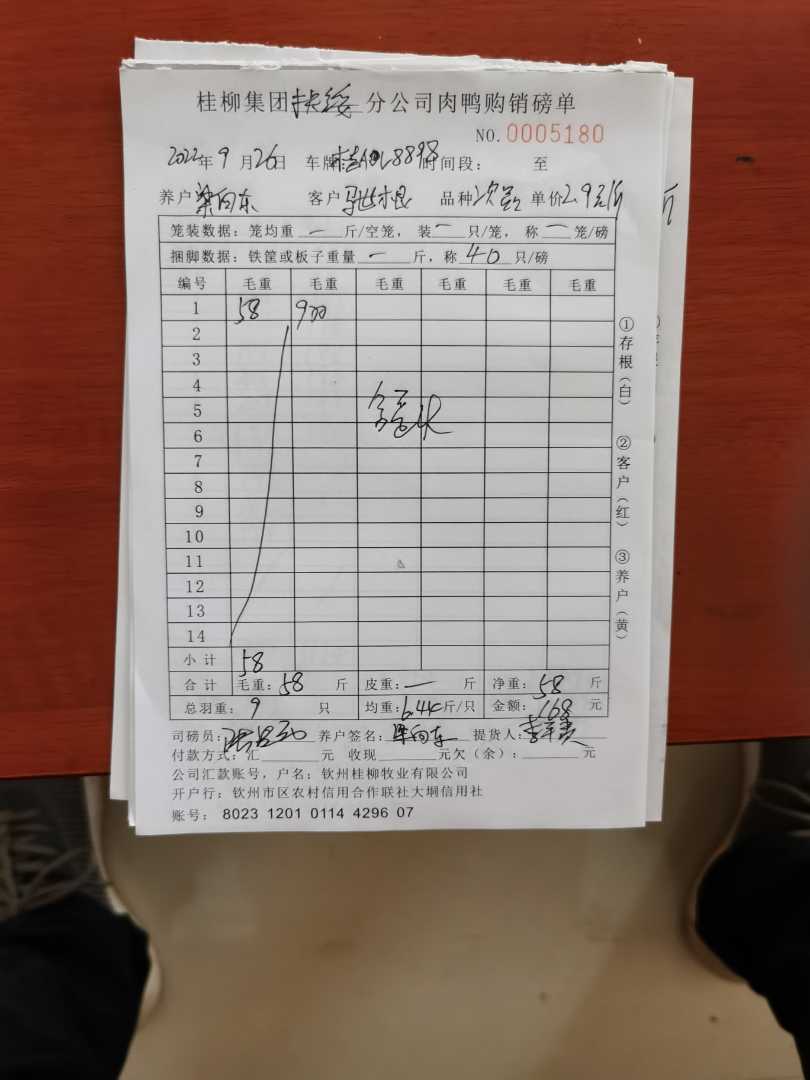 桂柳集团扶绥分公司肉鸭购销磅单
NO.0005180
2022年9月26日 车牌: 8898 时间段: 至
养户 梁向东 客户 马世根 品种 次 单价2.9元/斤
笼装数据: 笼均重 一 斤/空笼, 装 一 只/笼, 称 一 笼/磅
捆脚数据: 铁筐或板子重量 一 斤, 称 40 只/磅
编号 毛重 毛重 毛重 毛重 毛重 毛重
1 58 9羽
2
3
4
5
6
7
8
9
10
11
12
13
14
小计 58
合计 毛重: 58 斤 皮重: 一 斤 净重: 58 斤
总羽重: 9 只 均重: 6.44斤/只 金额: 168 元
司磅员: 养户签名: 梁向东 提货人:
付款方式: 汇 元 收现 元欠(余): 元
公司汇款账号, 户名: 钦州桂柳牧业有限公司
开户行: 钦州市区农村信用合作联社大垌信用社
账号: 8023 1201 0114 4296 07
①存根(白)
②客户(红)
③养户(黄)